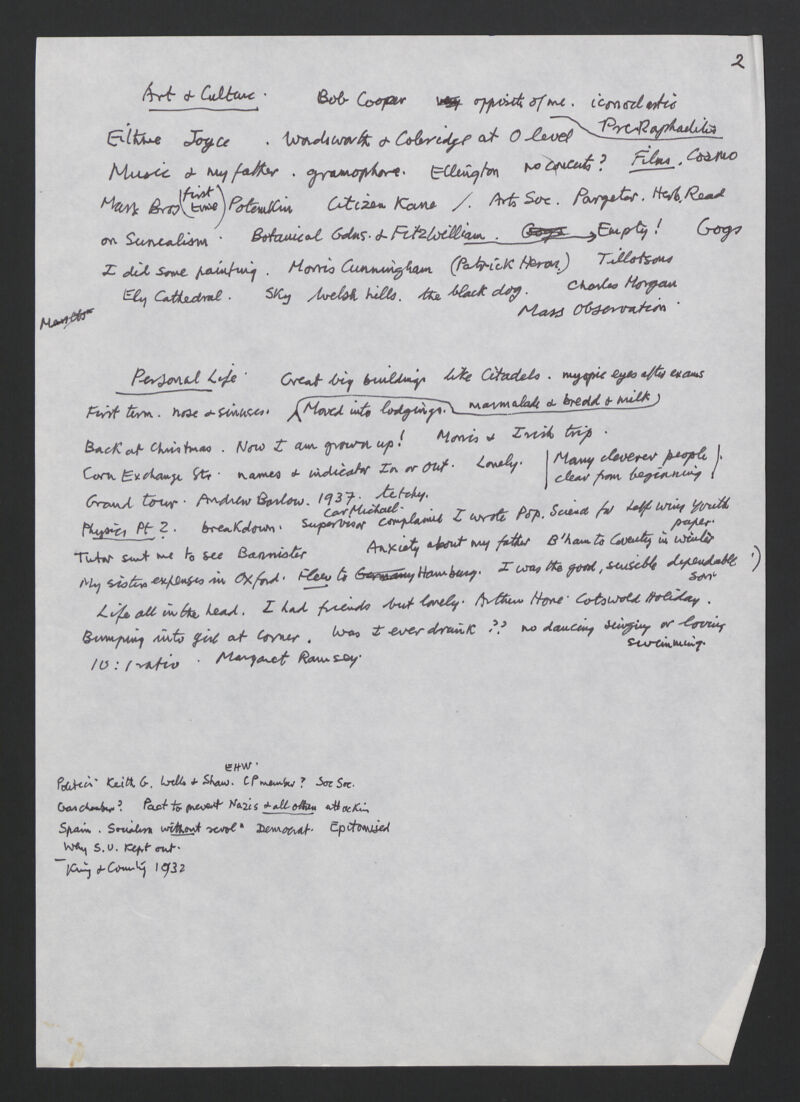 2
Art & Culture. Bob Cooper opposite of me. iconoclastic
Joyce. Wordsworth & Coleridge at O level PreRaphaelites
Music & my father. gramophone. Ellington no concerts? Films. Cosmo
Marx Bros (first time) Potemkin Citizen Kane /. Arts Soc. Pargeter. Herb. Read
on Surrealism. Botanical Gdns. & FitzWilliam. Gogs Empty! Gogs
I did some painting. Morris Cunningham (Patrick Heron) Tillotsons
Ely Cathedral. Sky Welsh hills. the black dog. Charles Morgan
Mass Observation.
Personal Life. Great big buildings like Citadels. myopic eyes after exams
First term. nose & sinuses. (Moved into lodgings. marmalade & bread & milk)
Back at Christmas. Now I am grown up! Morris & Irish trip.
Corn Exchange Str. names & indicator In or Out. Lonely. (Many cleverer people clear from beginning).
Grand tour. Andrew Barlow. 1937. tetchy.
Physics Pt 2. breakdown. Supervisor CarMichael. complained I wrote Pop. Science for left wing youth paper.
Tutor sent me to see Bannister Anxiety about my father B'ham to Coventry in winter
My sisters expenses in Oxford. Flew to Germany Hamburg. I was the good, sensible dependable son!)
Life all in the head. I had friends but lonely. Arthur Hone. Cotswold Holiday.
Bumping into girl at corner. Was I ever drunk?? no dancing singing or loving
swimming.
10:1 ratio. Margaret Ramsey.
EHW.
Politics Keith G. Wells & Shaw. CP member? Soc Soc.
Gas chamber? Pact to prevent Nazis & all others attacking
Spain. Socialism without revoln Democrat. Epitomised
Why S.U. kept out.
King & Country 1932